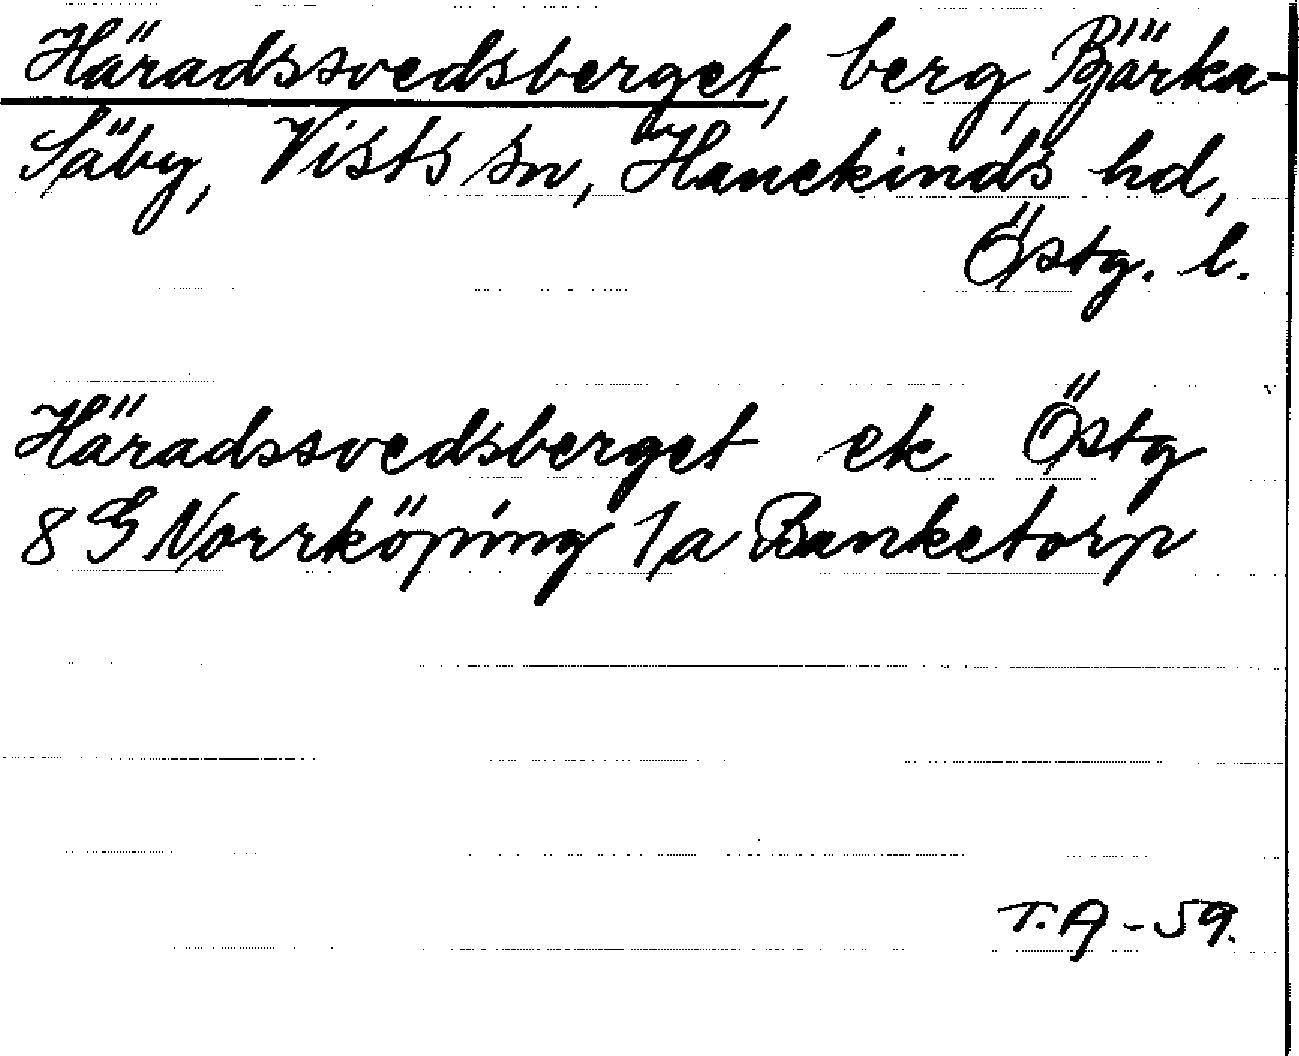 Häradssvedsberget, berg, Bjärka-
Säby, Vists sn, Hanekinds hd,
Östg. l.
Häradssvedsberget ek Östg
8 G Norrköping 1a Banketorp
T.A -59.